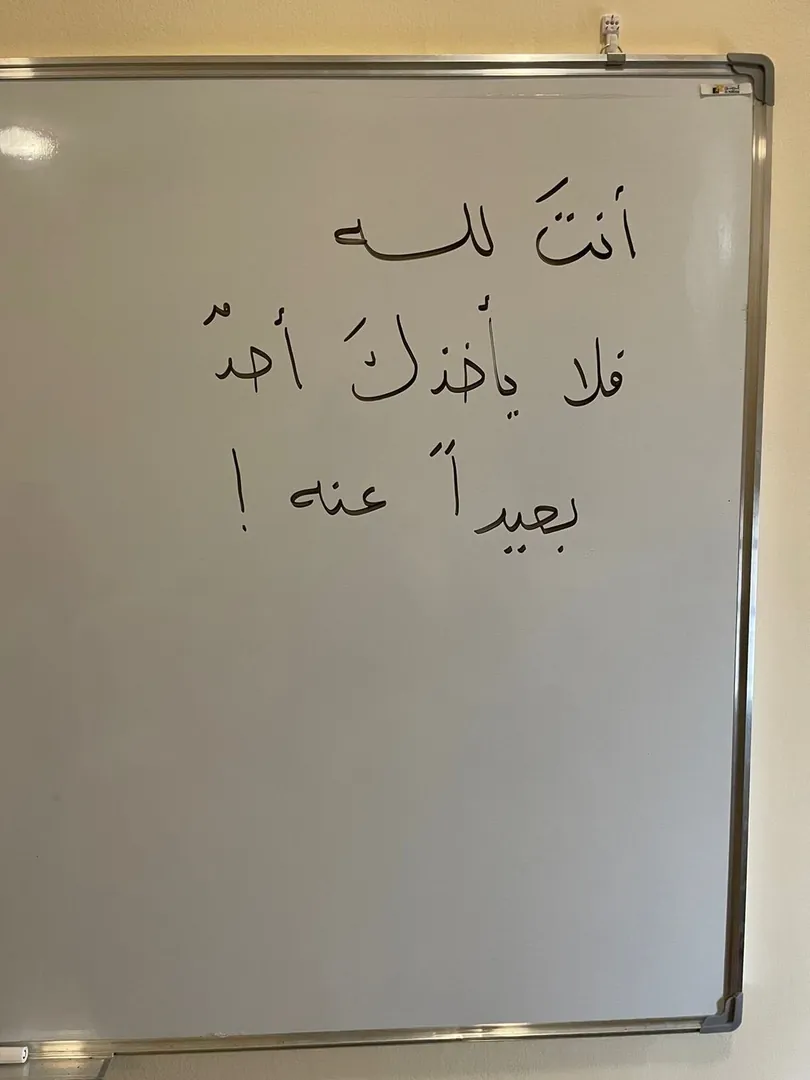 أنتَ لله
فلا يأخذكَ أحدٌ
بعيداً عنه !